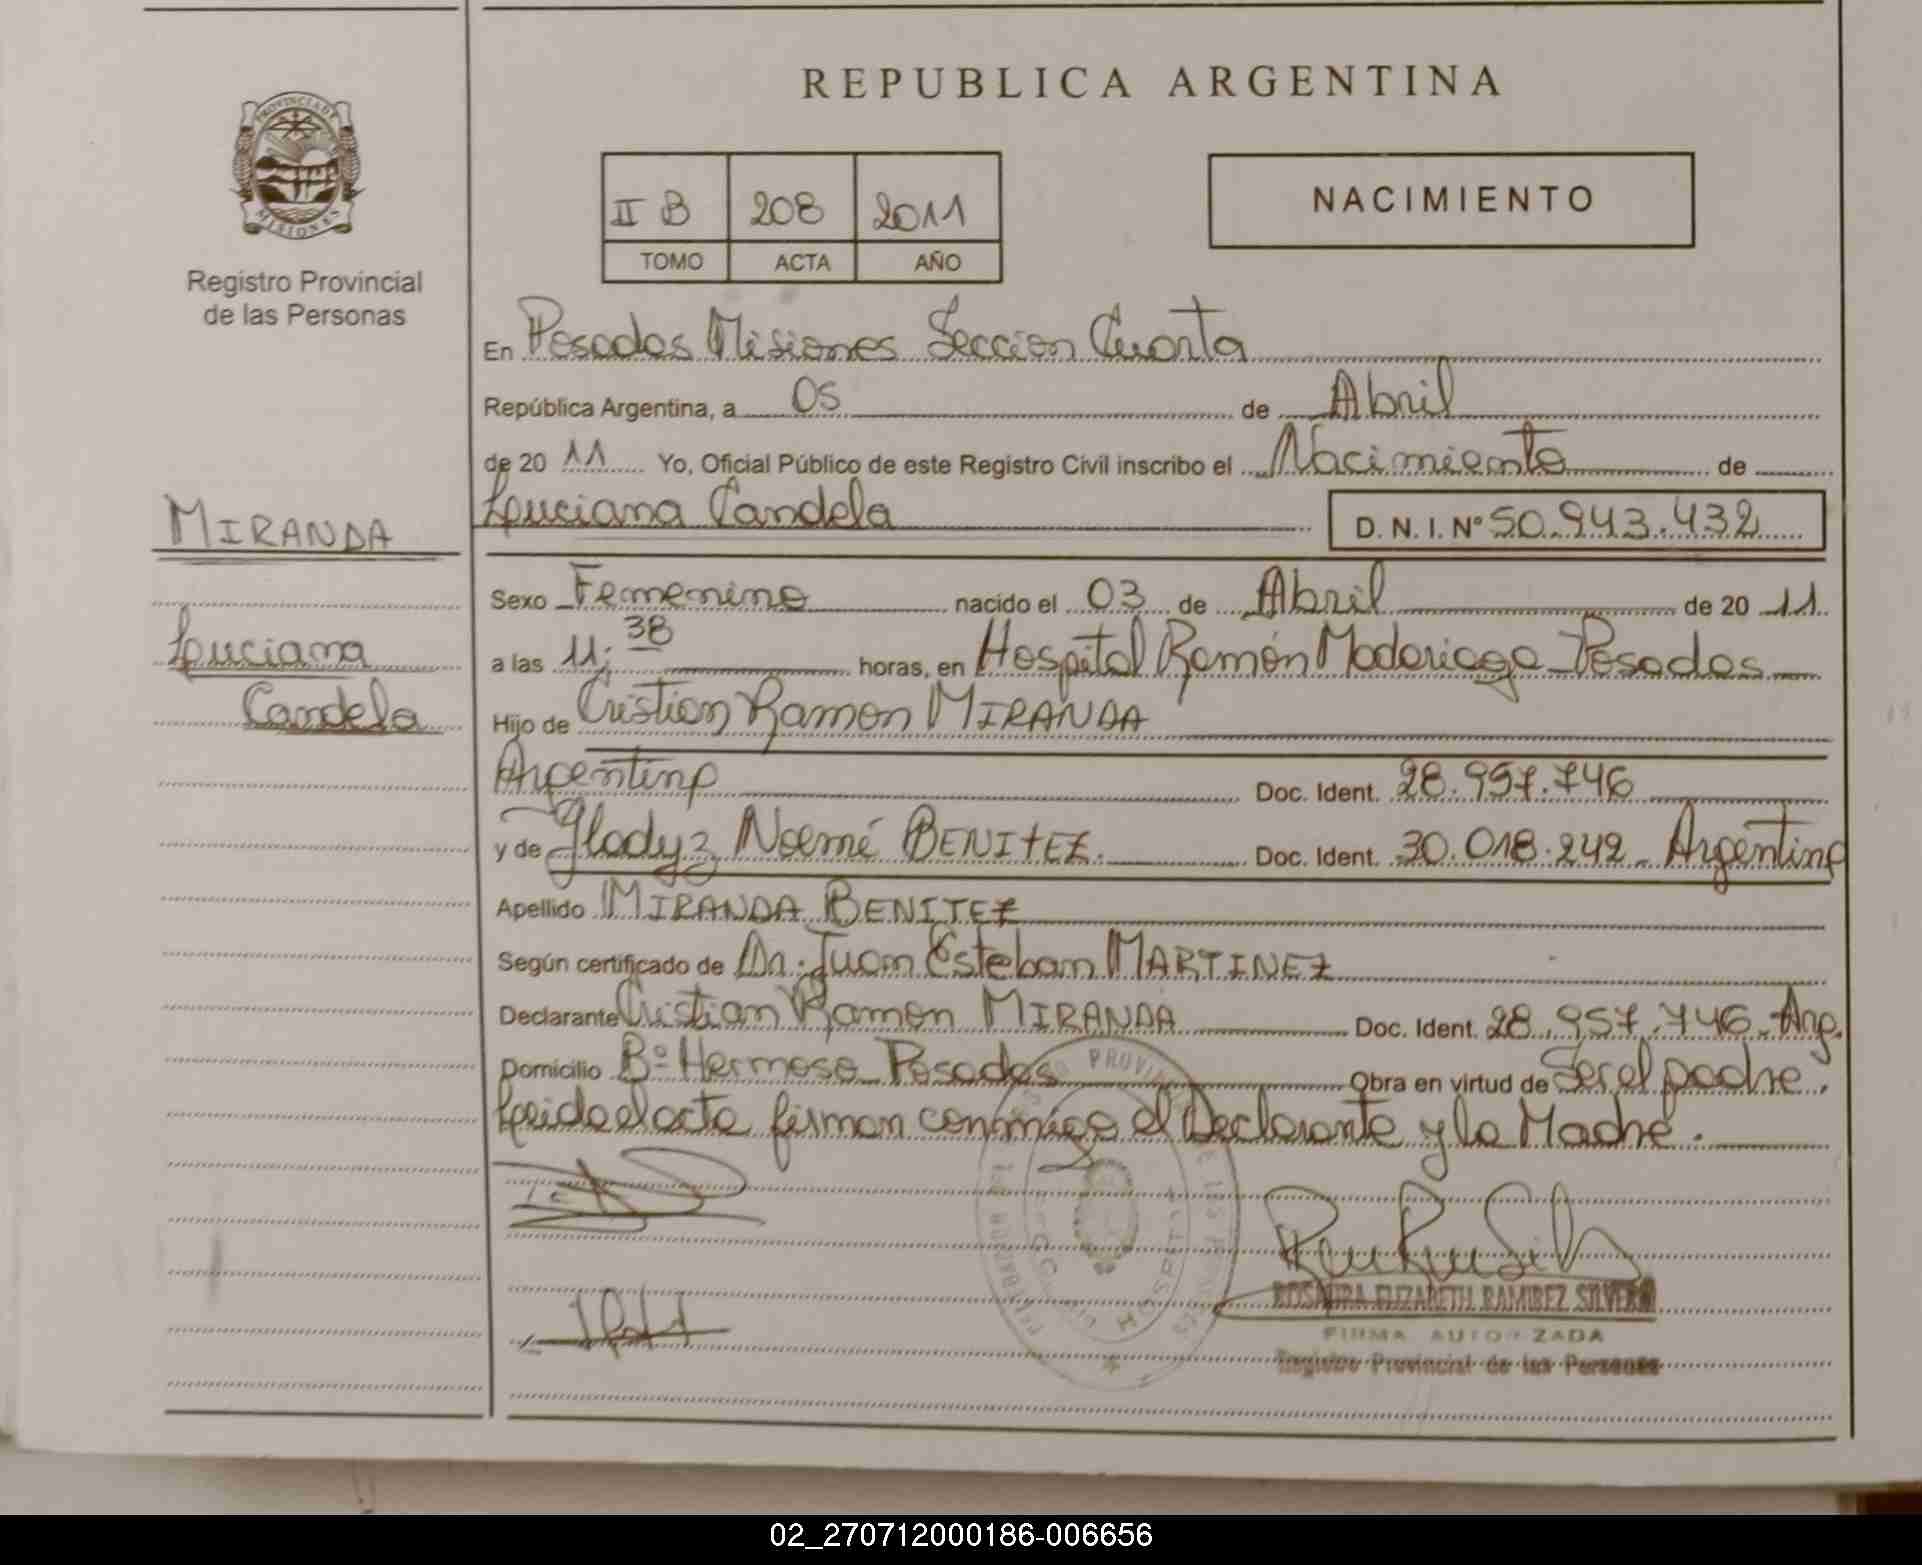 REPUBLICA ARGENTINA
PROVINCIA DE
MISIONES
Registro Provincial
de las Personas
II B 208 2011
TOMO ACTA AÑO
NACIMIENTO
En Posadas Misiones Seccion Cuarta
República Argentina, a 05 de Abril
de 20 11 Yo, Oficial Público de este Registro Civil inscribo el Nacimiento de
Luciana Candela D. N. I. Nº 50.943.432
MIRANDA
Luciana
Candela
Sexo Femenino nacido el 03 de Abril de 20 11
a las 11:38 horas, en Hospital Ramón Madariaga - Posadas
Hijo de Cristian Ramon MIRANDA
Argentino Doc. Ident. 28.957.746
y de Gladyz Noemé BENITEZ. Doc. Ident. 30.018.242 - Argentina
Apellido MIRANDA BENITEZ
Según certificado de Dr. Juan Esteban MARTINEZ
Declarante Cristian Ramon MIRANDA Doc. Ident. 28.957.746 - Arg.
Domicilio Bº Hermoso Posadas Obra en virtud de Ser el padre.
Leida el acta firman conmigo el Declarante y la Madre.
ROSAURA ELIZABETH RAMIREZ SILVERO
FIRMA AUTORIZADA
Registro Provincial de las Personas
02_270712000186-006656